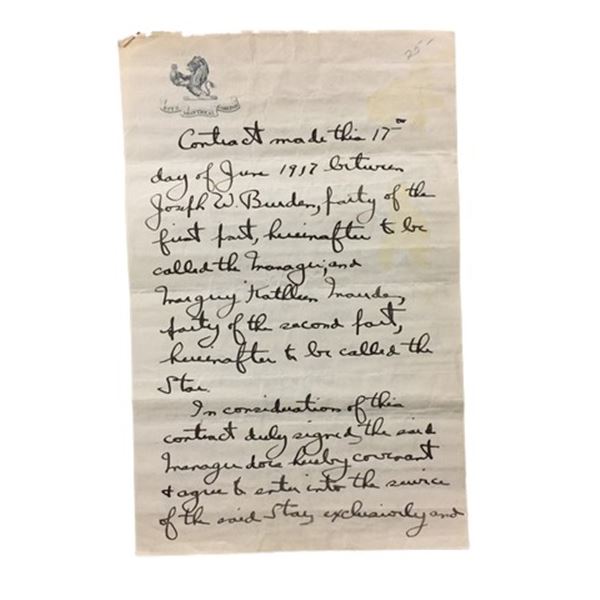 25-
Contract made this 17th
day of June 1917 between
Joseph W. Burden, party of the
first part, hereinafter to be
called the Manager, and
Kathleen
party of the second part,
hereinafter to be called the
Star.
In consideration of this
contract duly signed, the said
Manager does hereby covenant
& agree to enter into the service
of the said Star, exclusively and